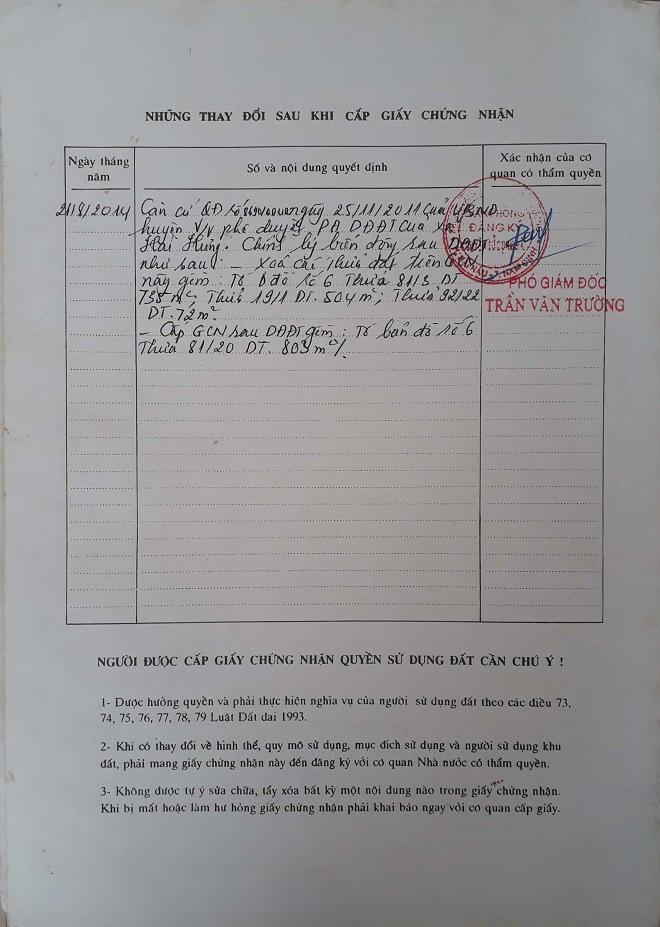 NHỮNG THAY ĐỔI SAU KHI CẤP GIẤY CHỨNG NHẬN
Ngày tháng năm
Số và nội dung quyết định
Xác nhận của cơ quan có thẩm quyền
21/8/2014
Căn cứ QĐ số ngày 25/11/2011 của UBND
huyện V/v phê duyệt PA DĐĐT của xã
Hải Hưng. Chỉnh lý biến động sau DĐĐT
như sau: - Xoá các thửa đất trên G
này gồm: Tờ b đồ số 6 Thửa 81/3 DT
738 m² Thửa 19/1 DT. 504 m²; Thửa 92/22
DT. 72 m²
- Cấp GCN sau DĐĐT gồm: Tờ bản đồ số 6
Thửa 81/20 DT. 803 m²/.
PHÓ GIÁM ĐỐC
TRẦN VĂN TRƯỜNG
NGƯỜI ĐƯỢC CẤP GIẤY CHỨNG NHẬN QUYỀN SỬ DỤNG ĐẤT CẦN CHÚ Ý !
1- Được hưởng quyền và phải thực hiện nghĩa vụ của người sử dụng đất theo các điều 73,
74, 75, 76, 77, 78, 79 Luật Đất đai 1993.
2- Khi có thay đổi về hình thể, quy mô sử dụng, mục đích sử dụng và người sử dụng khu
đất, phải mang giấy chứng nhận này đến đăng ký với cơ quan Nhà nước có thẩm quyền.
3- Không được tự ý sửa chữa, tẩy xóa bất kỳ một nội dung nào trong giấy chứng nhận.
Khi bị mất hoặc làm hư hỏng giấy chứng nhận phải khai báo ngay với cơ quan cấp giấy.